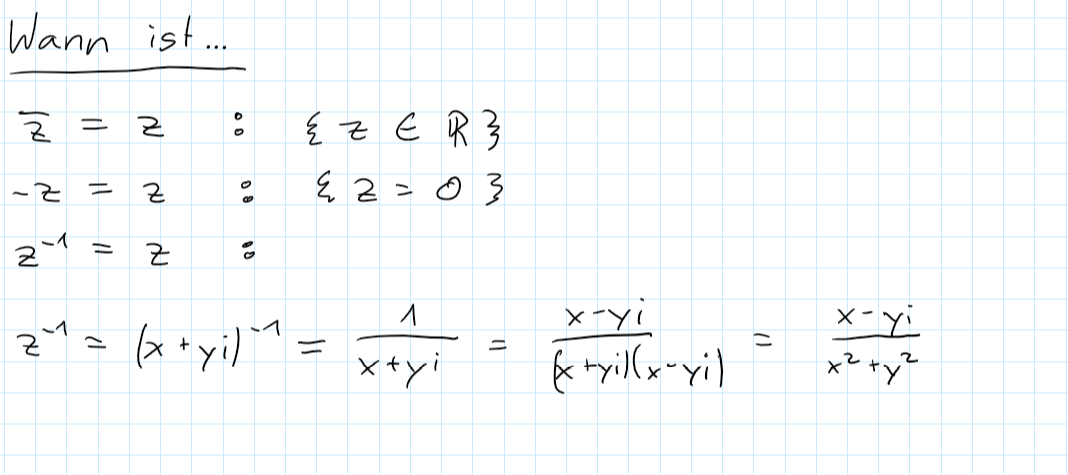 Wann ist...
z̅ = z : { z ∈ ℝ }
-z = z : { z = 0 }
z⁻¹ = z :
z⁻¹ = (x + yi)⁻¹ = 1/(x+yi) = (x-yi)/((x+yi)(x-yi)) = (x-yi)/(x²+y²)